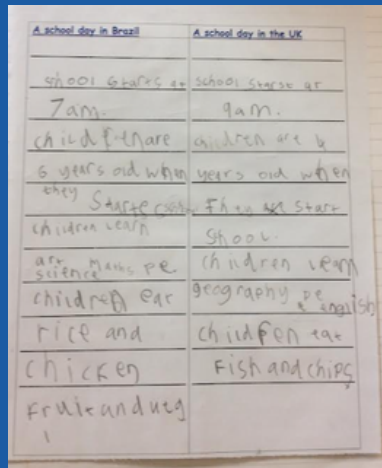 A school day in Brazil
school starts at
7am.
children are
6 years old when
they Starte
children learn
art maths pe
science
children ear
rice and
chicken
Fruit and
A school day in the UK
school starst ar
9am.
children are 4
years old when
start
Shool.
children learn
geography pe
english
children eat
Fish and chips